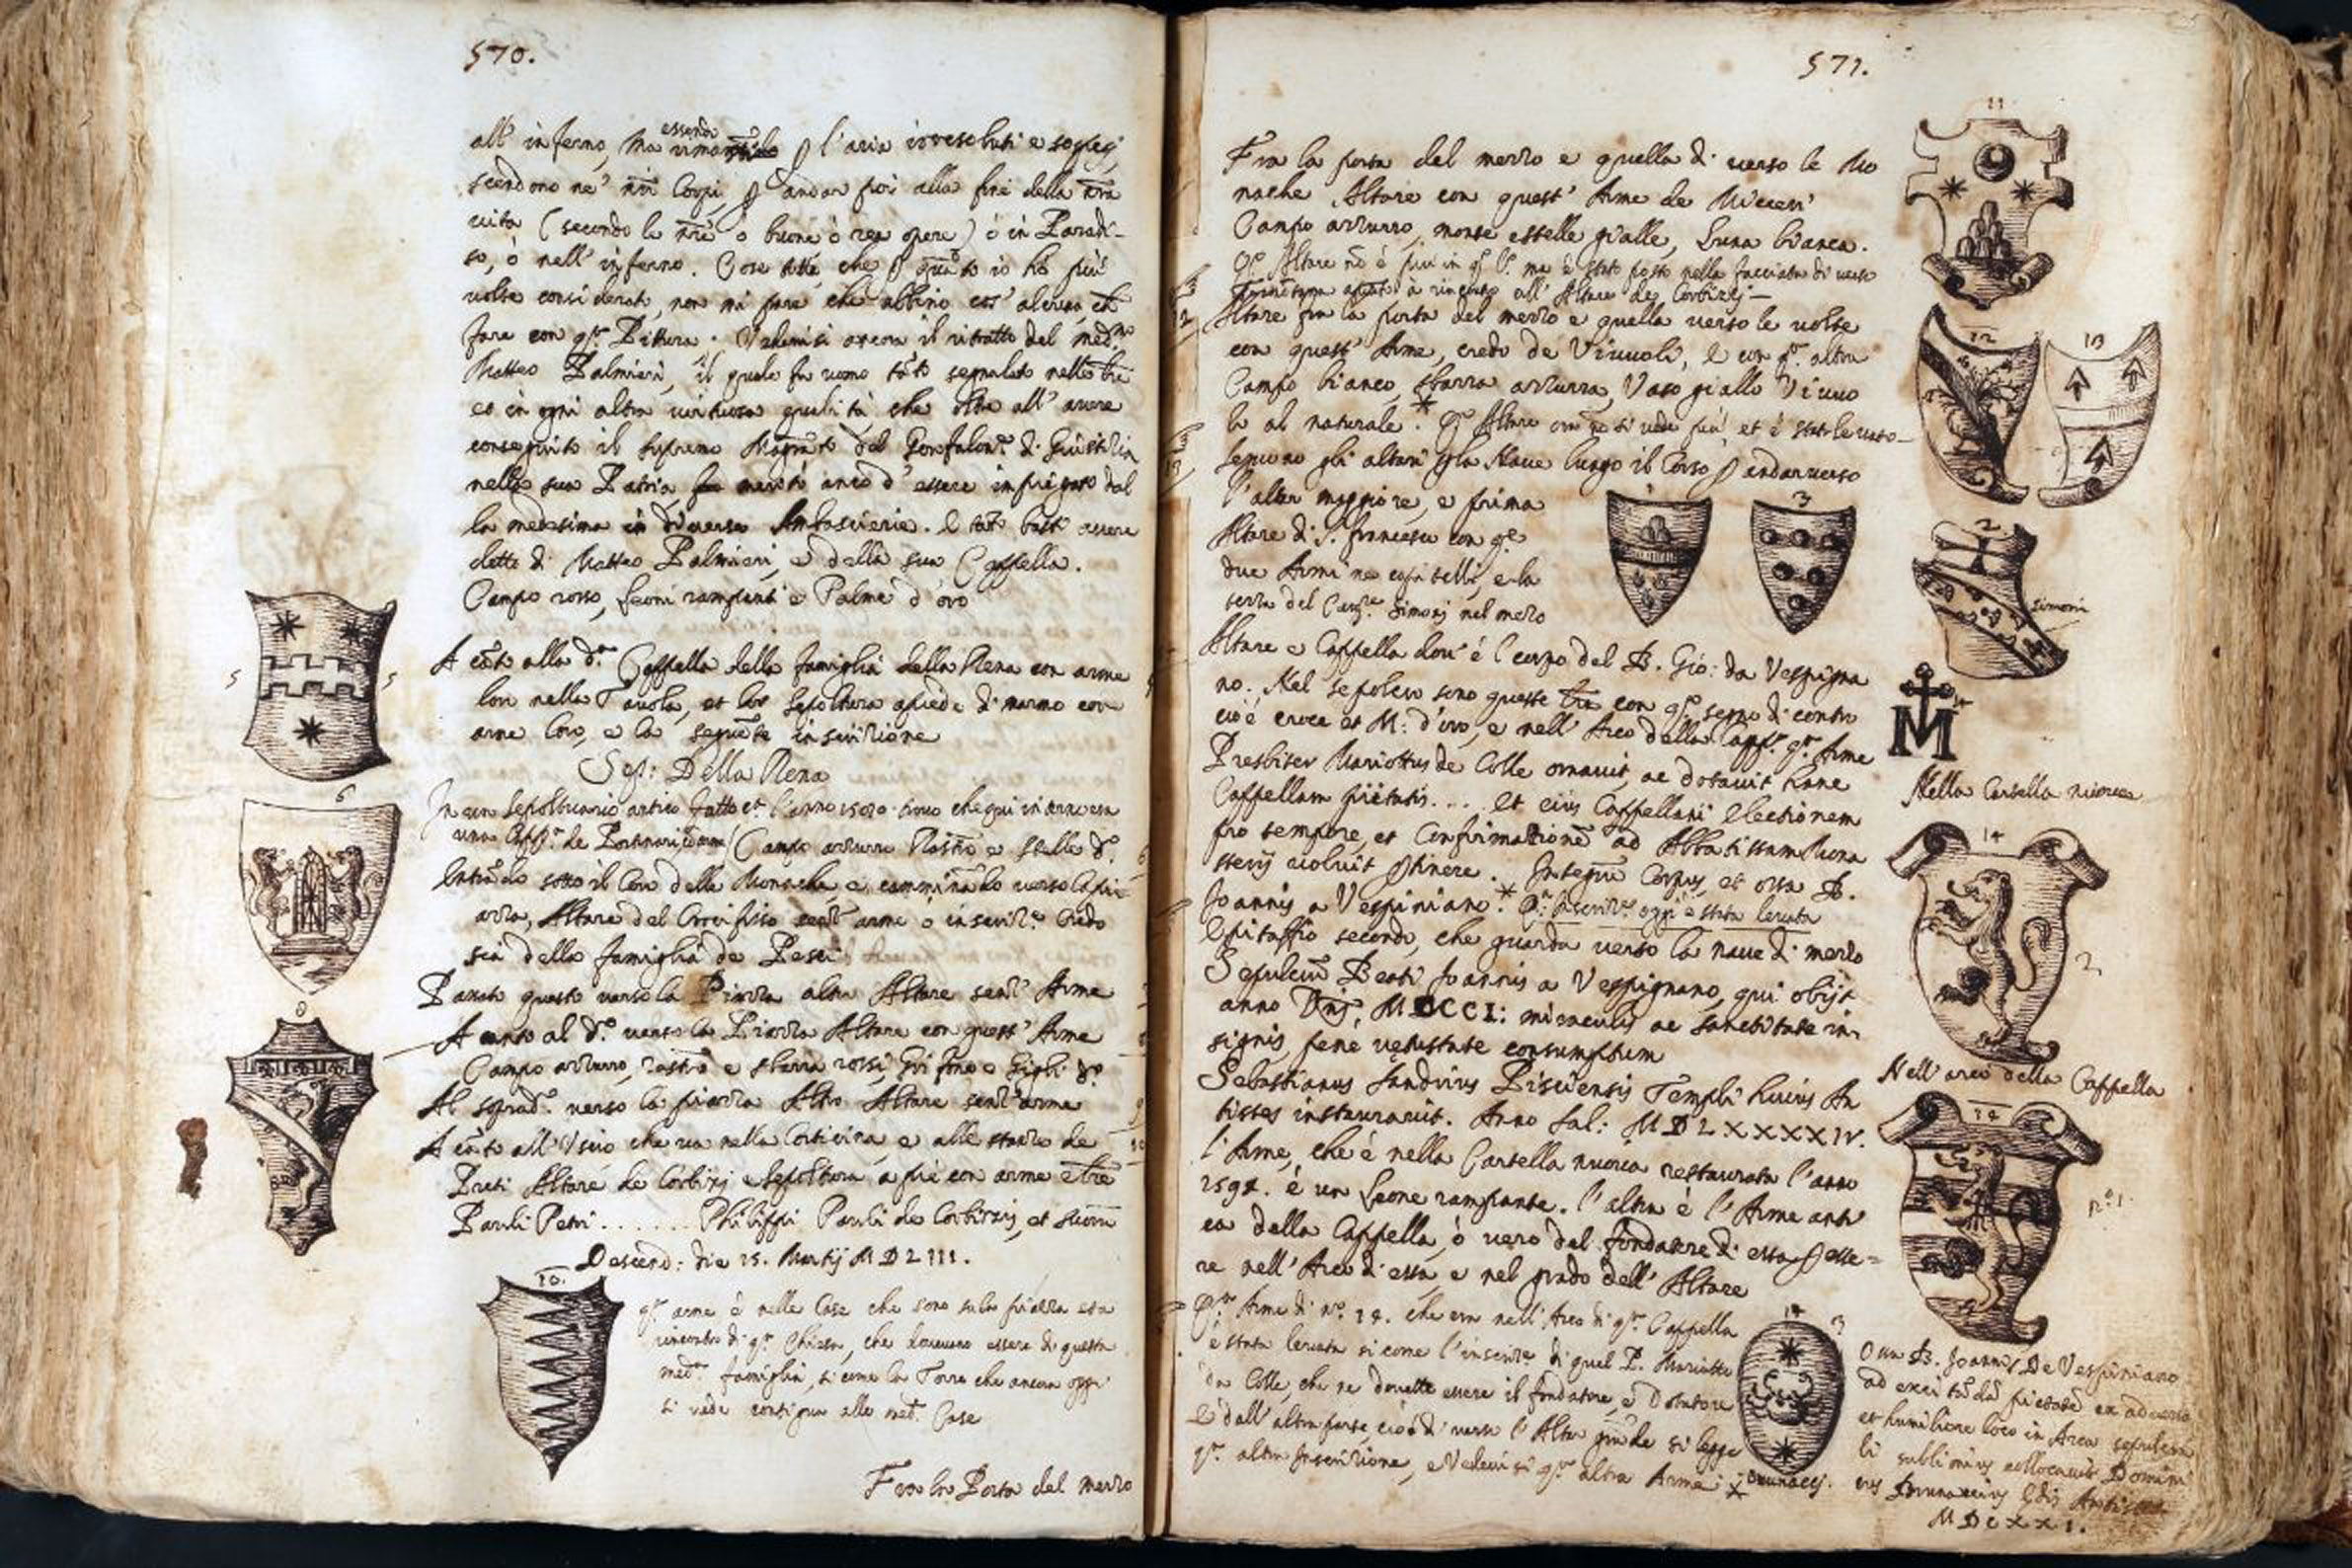 570.
all' inferno, ma essendo p l'aria irresoluti e sospesi
scendono ne' nri Corpi, p andar poi alla fine della nra
vita (secondo le nre ò buone ò ree opere) ò in Paradi-
so, ò nell' inferno. Cose tutte che p quanto io hò più
volte considerato, non mi pare che abbino cos' alcuna che
fare con qta Pittura. Vedevisi ancora il ritratto del med.mo
Matteo Palmieri, il quale fu uomo tanto segnalato nelle lre
et in ogni altra virtuosa qualità che oltre all' avere
conseguito il supremo Magrato del Gonfalon.e di Giustitia
nella sua Patria meritò anco d' essere impiegato dal
la medesima in diverse Ambascierie. E tanto basti avere
detto di Matteo Palmieri, e della sua Cappella.
Campo rosso, Leoni rampanti e Palme d'oro
A canto alla da Cappella della famiglia della Rena con arme
loro nella Tavola, et lor sepoltura a piede di marmo con
arme loro, e la seguente inscrizione
Sep: Della Rena
In un sepoltuario antico fatto l'anno trovo che qui vi era
una Capp.a de Portinari Campo azzurro Rastri e stelle d'o.
Entrando sotto il Coro delle Monache, e camminando verso la pi-
azza, Altare del Crocifisso senz' arme ò inscriz.e Credo
sia della famiglia de Pesci
Passato questo verso la Piazza altro Altare senz' Arme
A canto al do verso la Piazza Altare con quest' Arme
Campo azzurro, rastro e sbarra rossi, Grifone e Gigli d'o
Al soprad.o verso la piazza Altro Altare senz' arme
A canto all' Uscio che va nella Corticina, e alle stanze de
Preti Altare de Corbizi e sepoltura a piè con arme e lre
Pauli Petri . . . . . . Philippi Pauli de Corbizis, et suorum
Descend: die 15. Martij MDLIII.
10.
qta arme è nelle Case che sono sulla piazza
rincontro di qta Chiesa, che dovevano essere di questa
med.a famiglia, si come la Torre che ancora oggi
si vede contigua alle med.e Case
Fra la Porta del mezzo
5
5
6
8
571.
Fra la porta del mezzo e quella di verso le Mo
nache Altare con quest' Arme de Micceri
Campo azzurro, monte e stelle gialle, Luna bianca.
Qto Altare no è più in qto ma è stato posto nella facciata di verso
Tramontana a rincontro all' Altare de Corbizi —
Altare fra la porta del mezzo e quella verso le volte
con quest' Arme, credo de Vivuoli, e con qta altra
Campo bianco, sbarra azzurra, Vaso giallo Vivuo
lo al naturale. * Qto Altare no si vede più, et è stato levato —
Seguono gli altari p la Nave lungo il Corso p andar verso
l'altar maggiore, e prima
Altare di S. Francesco con qte
due Armi ne capitelli, e la
terza del Cav.re Simoni nel mezo
Altare e Cappella dov' è l corpo del B. Gio: da Vespigna
no. Nel sepolcro sono queste lre con qto segno di contro
cio è croce et M: d'oro, e nell' Arco della Capp.a qta Arme
Presbiter Mariottus de Colle ornavit, ac dotavit hanc
Cappellam pietatis. . . . et eius Cappellani Electionem
pro tempore, et Confirmationem ad Abbatissam Mona
sterij voluit ptinere. Integrum Corpus, et ossa B.
Joannis a Vespiniano. * Qta Inscriz.e oggi è stata levata
Epitaffio secondo, che guarda verso la nave di mezzo
Sepulcrum Beati Joannis a Vespignano, qui obijt
anno Dni, MCCCI: miraculis ac sanctitate in-
signis, pene vetustate consumptum
Sebastianus Sandrius Pisciensis Templi huius An
tistes instauravit. Anno Sal: MDLXXXXIV.
l'Arme, che è nella Cartella nuova restaurata l'anno
1594. è un Leone rampante. l'altra è l'Arme anti
ca della Cappella, ò vero del fondatore di essa p esse-
re nell' Arco di essa, e nel grado dell' Altare
Qta Arme di no. 14. che era nell' Arco di qta Cappella
è stata levata si come l'inscriz.e di quel P. Mariotto
da Colle, che ne dovette essere il fondatore, e Dotatore
E dall' altra parte, cioè di verso l' Altar grande si legge
qta altra Inscrizione, e Vedevisi qta altra Arme: * Brunacci.
11
12
13
1
3
2
Simoni
M
Nella Cartella nuova
14
2
Nell' arco della Cappella
14
n.o 1.
14
3
Ossa B. Joannis De Vespiniano
ad excitandam pietatem ex adverso
et humiliore loco in Arca sepulcra
li sublimius collocavit Domini
cus Brunaccius Antistes
MDCXXI.